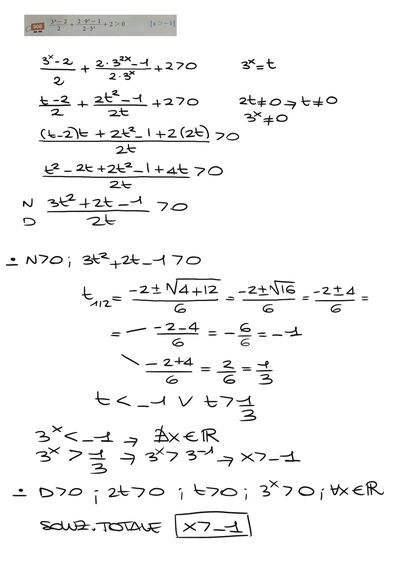 (3^x-2)/2 + (2·9^x-1)/(2·3^x) + 2 > 0 [x > -1]
(3^x-2)/2 + (2·3^2x-1)/(2·3^x) + 2 > 0 3^x = t
(t-2)/2 + (2t²-1)/(2t) + 2 > 0 2t ≠ 0 → t ≠ 0
3^x ≠ 0
((t-2)t + 2t²-1 + 2(2t))/(2t) > 0
(t²-2t+2t²-1+4t)/(2t) > 0
N
D (3t²+2t-1)/(2t) > 0
• N>0; 3t²+2t-1>0
t1/2 = (-2±√(4+12))/6 = (-2±√16)/6 = (-2±4)/6 =
= (-2-4)/6 = -6/6 = -1
(-2+4)/6 = 2/6 = 1/3
t < -1 ∨ t > 1/3
3^x < -1 → ∄x∈ℝ
3^x > 1/3 → 3^x > 3^-1 → x > -1
• D>0; 2t>0; t>0; 3^x>0; ∀x∈ℝ
SOLUZ. TOTALE x > -1